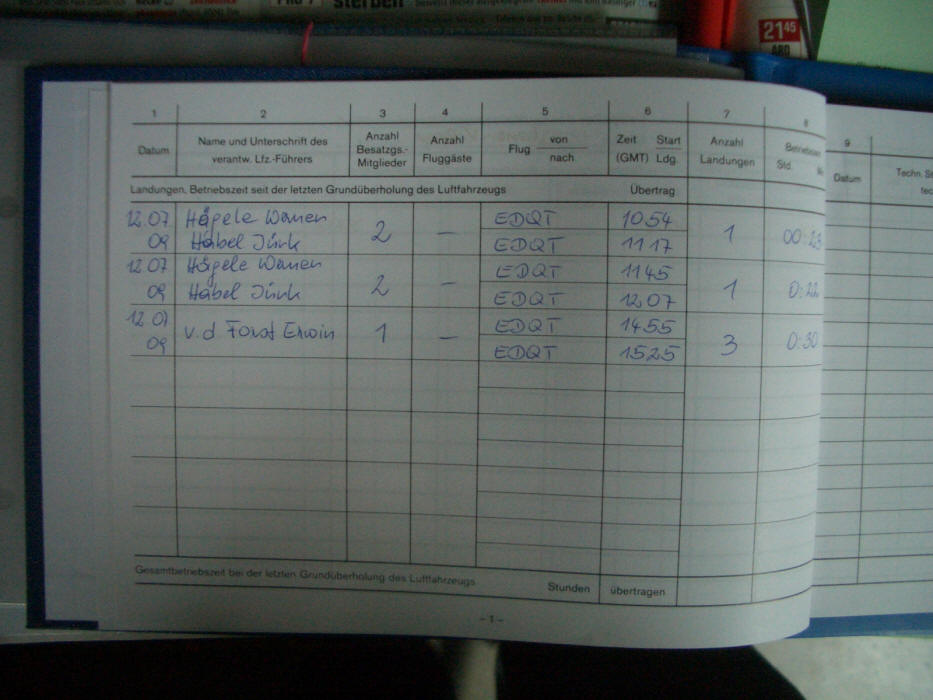 sterben
21 45
1 2 3 4 5 6 7 8 9
Datum Name und Unterschrift des verantw. Lfz.-Führers Anzahl Besatzgs.-Mitglieder Anzahl Fluggäste Flug von nach Zeit (GMT) Start Ldg. Anzahl Landungen Std. Datum
Landungen, Betriebszeit seit der letzten Grundüberholung des Luftfahrzeugs Übertrag
12.07 Hägele EDQT 1054
09 Habel 2 — EDQT 1117 1
12.07 Hägele EDQT 1145
09 Habel 2 — EDQT 1207 1 0:22
12.07 v.d Forst Erwin 1 — EDQT 1455
09 EDQT 1525 3 0:30
Gesamtbetriebszeit bei der letzten Grundüberholung des Luftfahrzeugs Stunden übertragen
- 1 -